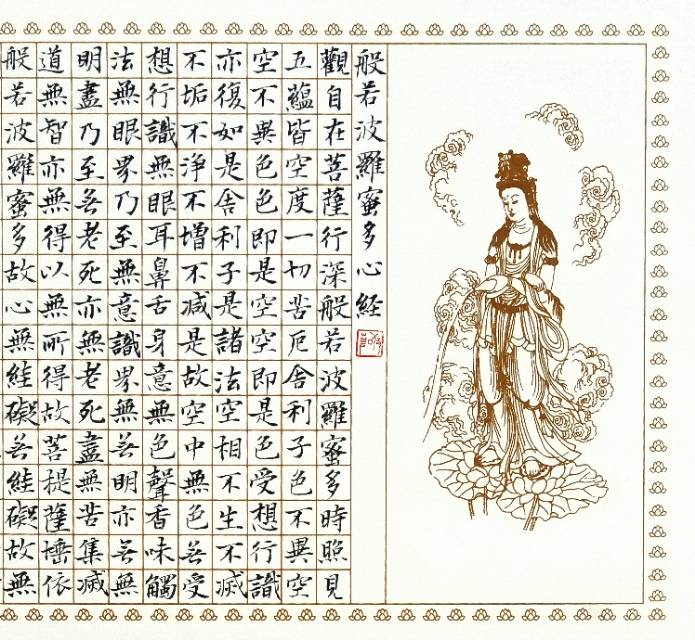 般若波羅蜜多心経
觀自在菩薩行深般若波羅蜜多時照見
五蘊皆空度一切苦厄舍利子色不異空
空不異色色即是空空即是色受想行識
亦復如是舍利子是諸法空相不生不滅
不垢不淨不增不減是故空中無色无受
想行識無眼耳鼻舌身意無色聲香味觸
法無眼界乃至無意識界無无明亦无無
明盡乃至无老死亦無老死盡無苦集滅
道無智亦無得以無所得故菩提薩埵依
般若波羅蜜多故心無絓礙无絓礙故無